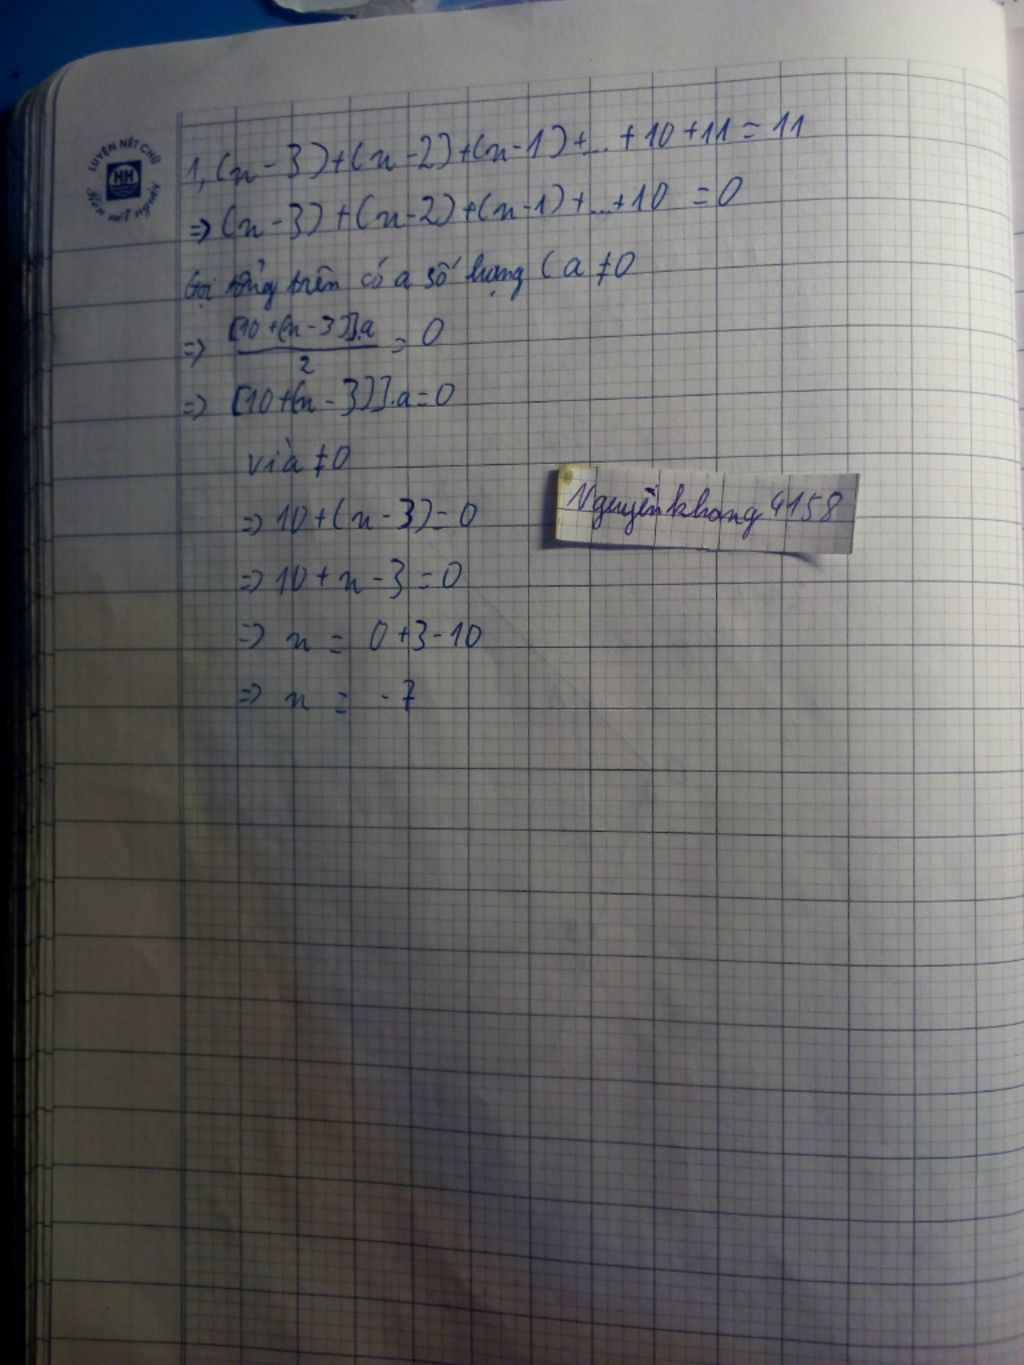 LUYỆN NÉT CHỮ
HH
Rèn nết người
1, (x-3)+(x-2)+(x-1)+...+10+11=11
=> (x-3)+(x-2)+(x-1)+...+10 =0
Gọi tổng trên có a số hạng (a ≠0
=> [10+(x-3)].a/2 = 0
=> [10+(x-3)].a=0
vì a ≠0
=> 10+(x-3)=0
=> 10+x-3=0
=> x = 0+3-10
=> x = -7
Nguyễn khang 4158